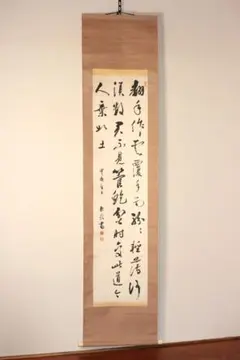 翻手作雲覆手雨紛々輕薄何
須數君不見管鮑貧時交此道今
人棄如土
書